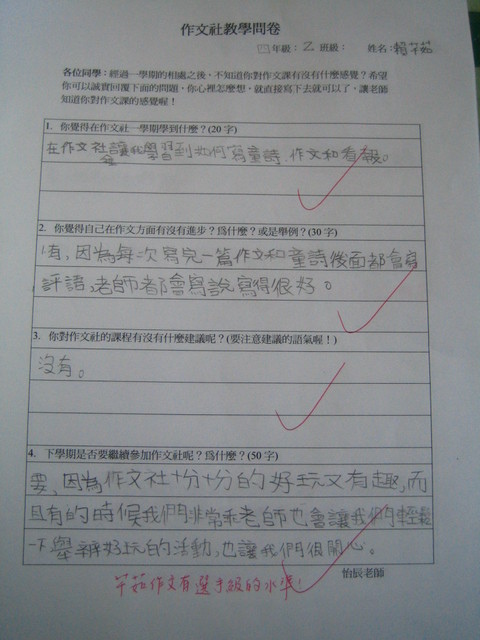 作文社教學問卷
四年級：乙班級： 姓名：賴芊茹
各位同學：經過一學期的相處之後，不知道你對作文課有沒有什麼感覺？希望
你可以誠實回覆下面的問題，你心裡怎麼想，就直接寫下去就可以了，讓老師
知道你對作文課的感覺喔！
1. 你覺得在作文社一學期學到什麼？(20字)
在作文社讓我學習到如何寫童詩、作文和看報。
2. 你覺得自己在作文方面有沒有進步？為什麼？或是舉例？(30字)
有，因為每次寫完一篇作文和童詩後面都會寫
評語，老師都會寫說寫得很好。
3. 你對作文社的課程有沒有什麼建議呢？(要注意建議的語氣喔！)
沒有。
4. 下學期是否要繼續參加作文社呢？為什麼？(50字)
要，因為作文社十分十分的好玩又有趣，而
且有的時候我們非常乖老師也會讓我們輕鬆
一下舉辦好玩的活動，也讓我們很開心。
怡辰老師
芊茹作文有選手級的水準！